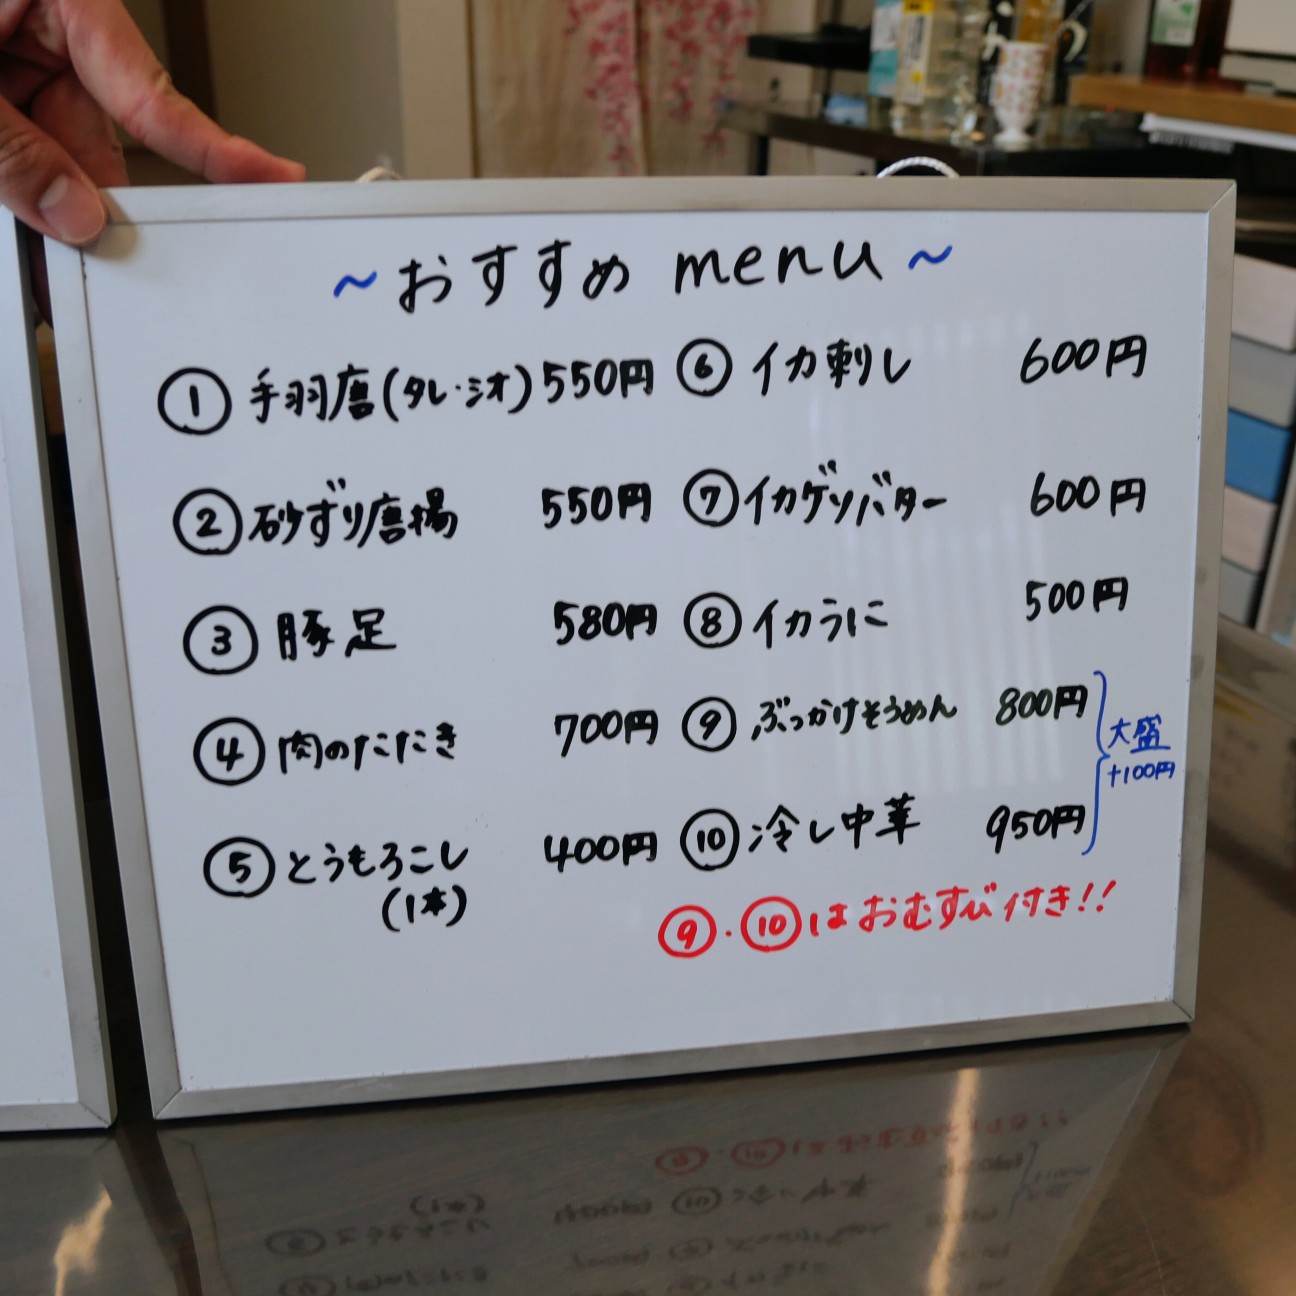 ～おすすめ menu～
① 手羽唐(タレ・シオ) 550円
② 砂ずり唐揚 550円
③ 豚足 580円
④ 肉のたたき 700円
⑤ とうもろこし 400円
(1本)
⑥ イカ刺し 600円
⑦ イカゲソバター 600円
⑧ イカうに 500円
⑨ ぶっかけそうめん 800円
⑩ 冷し中華 950円
大盛
+100円
⑨・⑩はおむすび付き!!